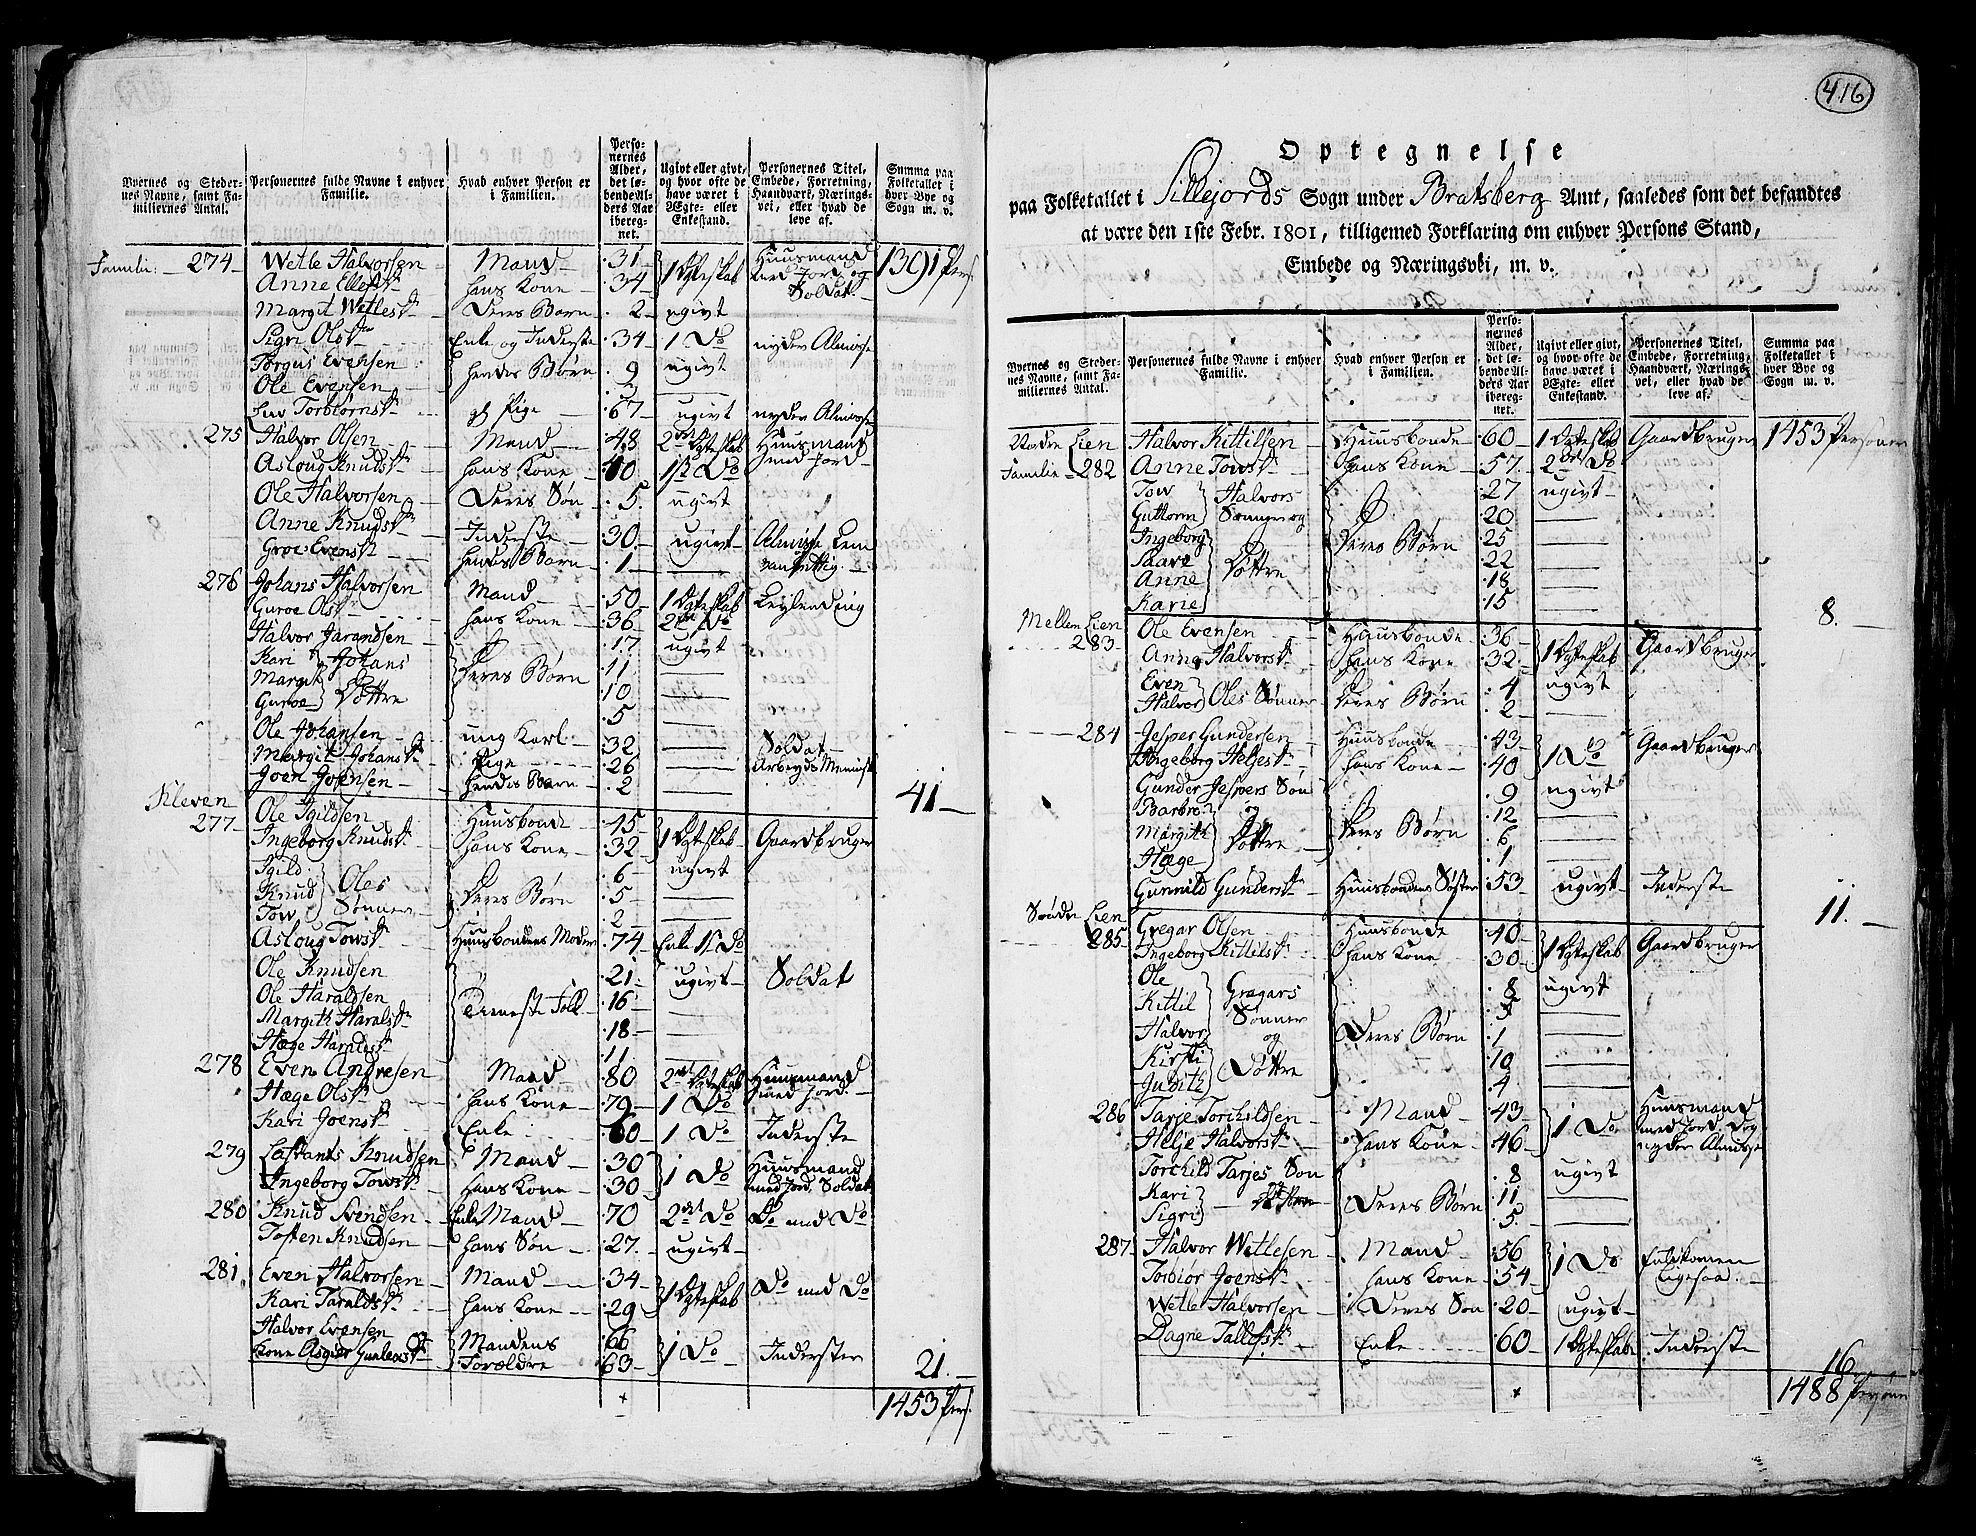 416
Byernes og Steder-
nes Navne, samt Fa-
milliernes Antal.
Personernes fulde Navne i enhver
Familie.
Hvad enhver Person er
i Familien.
Perso-
nernes
Alder,
det lø-
bende Al-
ders Aar
ibereg-
net.
Ugivt eller givt,
og hvor ofte de
have været i
Ægte- eller
Enkestand.
Personernes Titel,
Embede, Forretning,
Haandværk, Nærings-
vei, eller hvad de
leve af.
Summa paa
Folketallet i
hver Bye og
Sogn m. v.
Familie 274 Wetle Halvorsen Mand 31 1 Ægteskab Huusmand 1391 Pers.
Anne Ellefsdr hans Kone 34 med Jord og Soldat
Margit Wetlesdr Deres Barn 2 ugivt
Sigri Olsdr Enke og Inderste 34 1 Do nyder Almisse
Torgus Evensen hendes Børn 9 ugivt
Ole Evensen
Liv Torbiørnsdr Pige 67 ugivt nyder Almisse
275 Halvor Olsen Mand 48 2det Ægteskab Huusmand
Asloug Knudsdr hans Kone 40 1st Do med Jord
Ole Halvorsen Deres Søn 5 ugivt
Anne Knudsdr Inderste 30 ugivt Almisse Lem
Groe Evensdr hendes Barn 1
276 Johans Halvorsen Mand 50 1 Ægteskab Leylending
Guroe Olsdr hans Kone 36 2det Do
Halvor Jarandsen 17 ugivt
Kari Johans Deres Børn 11
Margit Døttre 10
Guroe 5
Ole Johansen ung Karl 32 Soldat
Margit Johansdr Pige 26
Joen Joensen hendes Barn 2
41
Kleven
277 Ole Igildsen Huusbonde 45 1 Ægteskab Gaardbruger
Ingeborg Knudsdr hans Kone 32
Igild Oles Deres Børn 6 ugivt
Knud Sønner 5
Tow 2
Asloug Towsdr Huusbondens Moder 74 Enke 1st Do
Ole Knudsen Tieneste Folk 21 ugivt Soldat
Ole Haraldsen 16
Margith Haralsdr 18
Hæge Haraldsdr 11
278 Even Andresen Mand 80 2det Ægteskab Huusmand
Hæge Olsdr hans Kone 79 1 Do med Jord
Kari Joensdr Enke 60 1 Do Inderste
279 Knudsen Mand 30 1 Do Huusmand
Ingeborg Towsdr hans Kone 30 med Jord Soldat
280 Knud Svendsen Mand 70 2det Do Do med Do
Tosten Knudsen hans Søn 27 ugivt
281 Even Halvorsen Mand 34 1 Ægteskab Do med Do
Kari Taraldsdr hans Kone 29
Halvor Evensen Mandens 66 1 Do Inderster
Kone Forældre 63
21
1453 Pers.
Optegnelse
paa Folketallet i Sillejords Sogn under Bratsberg Amt, saaledes som det befandtes
at være den 1ste Febr. 1801, tilligemed Forklaring om enhver Persons Stand,
Embede og Næringsvei, m. v.
Byernes og Steder-
nes Navne, samt Fa-
milliernes Antal.
Personernes fulde Navne i enhver
Familie.
Hvad enhver Person er
i Familien.
Perso-
nernes
Alder,
det lø-
bende Al-
ders Aar
ibereg-
net.
Ugivt eller givt,
og hvor ofte de
have været i
Ægte- eller
Enkestand.
Personernes Titel,
Embede, Forretning,
Haandværk, Nærings-
vei, eller hvad de
leve af.
Summa paa
Folketallet i
hver Bye og
Sogn m. v.
Lien Halvor Kittilsen Huusbonde 60 1 Ægteskab Gaardbruger 1453 Personer
Familie 282 Anne Towsdr hans Kone 57 2det Do
Tow Halvors Deres Børn 27 ugivt
Guttorm Sønner og 20
Ingeborg Døttre 25
Saave 22
Anne 18
Karie 15
8
Mellem Lien
283 Ole Evensen Huusbonde 36 1 Ægteskab Gaardbruger
Anne Halvorsdr hans Kone 32
Even Oles Sønner Deres Børn 4 ugivt
Halvor 2
284 Jesper Gundersen Huusbonde 43 1 Do Gaardbruger
Ingeborg Heljesdr hans Kone 40
Gunder Jespers Søn Deres Børn 9 ugivt
Barbro og 12
Margith Døttre 6
Hæge 1
Gunnild Gundersdr Huusbondens Søster 53 ugivt Inderste
11
Søndre Lien
285 Gregar Olsen Huusbonde 40 1 Ægteskab Gaardbruger
Ingeborg Kittilsdr hans Kone 30
Ole Gregars Deres Børn 8 ugivt
Kittil Sønner
Halvor og 1
Kirsti Døttre 10
Judith 4
286 Tarje Torchildsen Mand 43 1 Do Huusmand
Helje Halvorsdr hans Kone 46 med Jord og nyder Almisse
Torchild Tarjes Søn Deres Børn 8 ugivt
Kari 11
Sigri 5
287 Halvor Wetlesen Mand 56 1 Do
Torbiør Joensdr hans Kone 54
Wetle Halvorsen Deres Søn 20 ugivt
Dagne Tallefsdr Enke 60 1 Ægteskab Inderste
16
1488 Personer